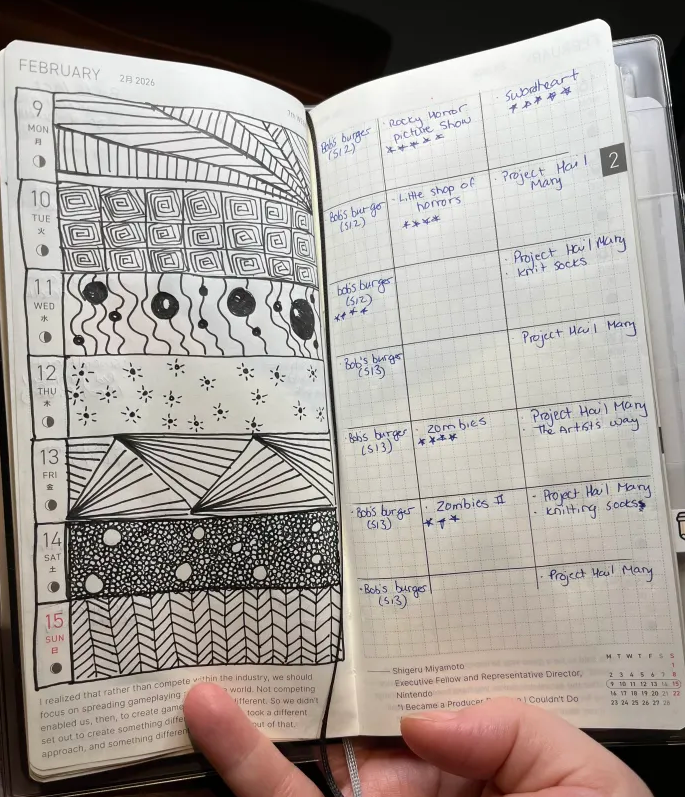 FEBRUARY 2月 2026
9
MON
月
10
TUE
火
11
WED
水
12
THU
木
13
FRI
金
14
SAT
土
15
SUN
日
I realized that rather than compete within the industry, we should
focus on spreading gameplaying world. Not competing
enabled us, then, to create game different. So we didn't
set out to create something diffe took a different
approach, and something differen out of that.
Bob's burger
(S12)
· Rocky Horror
picture show
★★★★★
· Swordheart
★★★★★
2
Bob's burger
(S12)
· Little shop of
horrors
★★★★
· Project Hail
Mary
bob's burger
(S12)
★★★★
· Project Hail Mary
· knit socks
Bob's burger
(S13)
Project Hail Mary
Bob's burger
(S13)
· Zombies
★★★★
· Project Hail Mary
· The Artists way
· Bob's burger
(S13)
· Zombies II
★★★
· Project Hail Mary
· knitting socks
· Bob's burger
(S13)
· Project Hail Mary
Shigeru Miyamoto
Executive Fellow and Representative Director,
Nintendo
"I Became a Producer I Couldn't Do
M T W T F S S
1
2 3 4 5 6 7 8
9 10 11 12 13 14 15
16 17 18 19 20 21 22
23 24 25 26 27 28